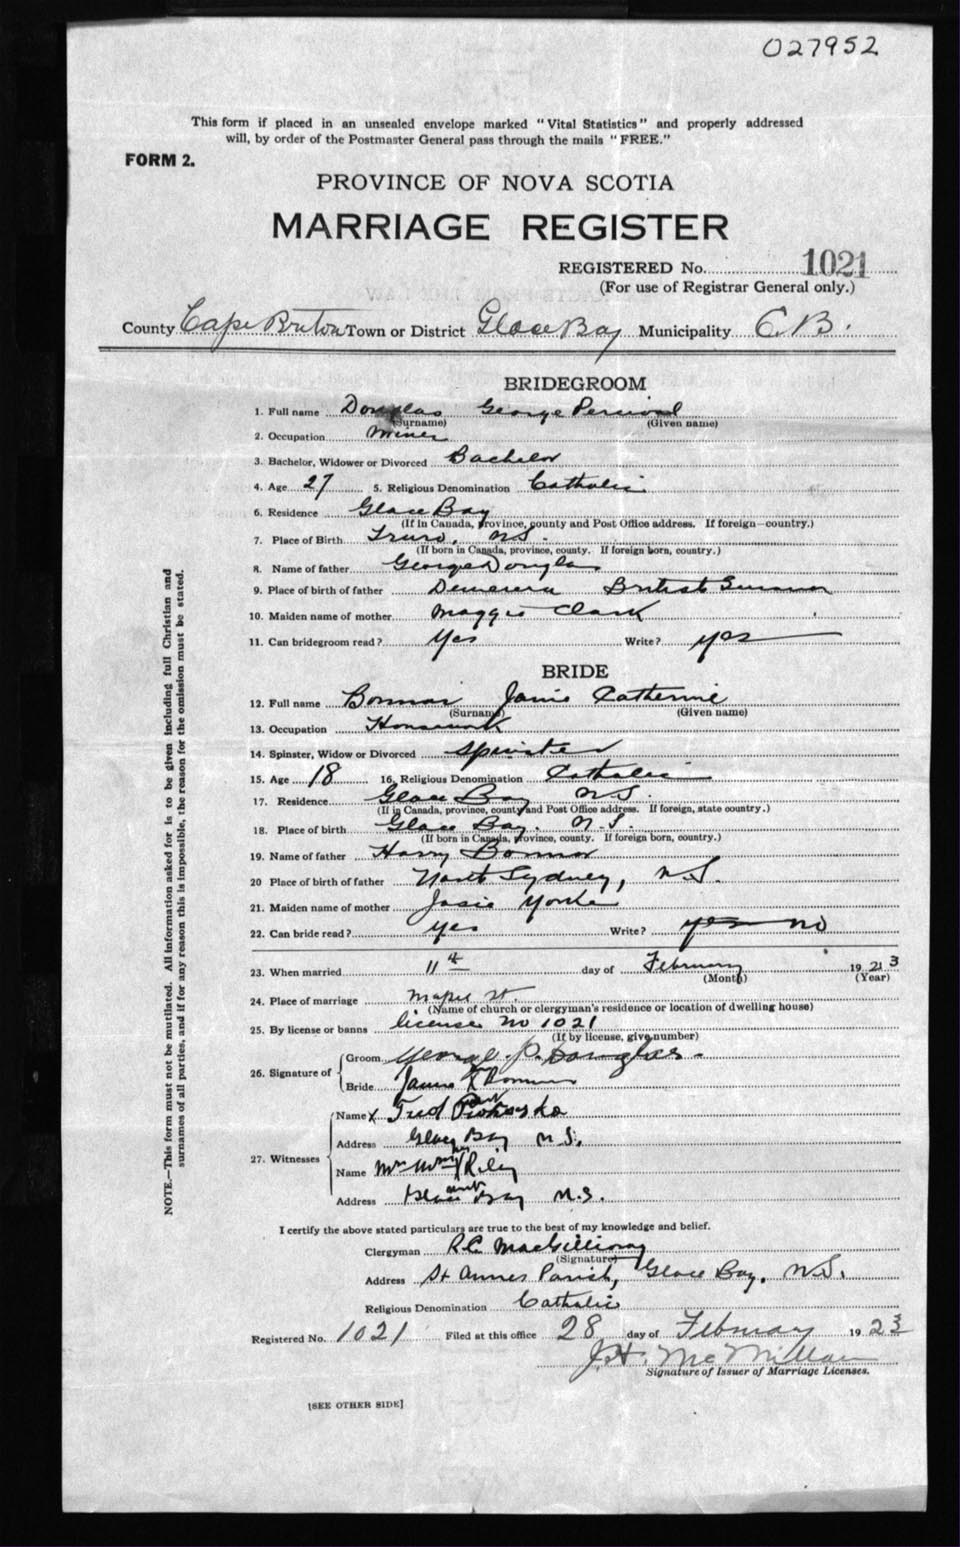 027952
This form if placed in an unsealed envelope marked "Vital Statistics" and properly addressed
will, by order of the Postmaster General pass through the mails "FREE."
FORM 2.
PROVINCE OF NOVA SCOTIA
MARRIAGE REGISTER
REGISTERED No. 1021
(For use of Registrar General only.)
County Cape Breton Town or District Glace Bay Municipality C.B.
BRIDEGROOM
1. Full name Douglas George Percival
(Surname) (Given name)
2. Occupation Miner
3. Bachelor, Widower or Divorced Bachelor
4. Age 27 5. Religious Denomination Catholic
6. Residence Glace Bay
(If in Canada, province, county and Post Office address. If foreign—country.)
7. Place of Birth Truro, N.S.
(If born in Canada, province, county. If foreign born, country.)
8. Name of father George Douglas
9. Place of birth of father Demerara British
10. Maiden name of mother Maggie Clark
11. Can bridegroom read? Yes Write? yes
BRIDE
12. Full name Janie Catherine
(Surname) (Given name)
13. Occupation Housework
14. Spinster, Widow or Divorced Spinster
15. Age 18 16. Religious Denomination Catholic
17. Residence Glace Bay N.S.
(If in Canada, province, county and Post Office address. If foreign, state country.)
18. Place of birth Glace Bay. N.S.
(If born in Canada, province, county. If foreign born, country.)
19. Name of father Harry
20 Place of birth of father North Sydney, N.S.
21. Maiden name of mother Josie Yorke
22. Can bride read? Yes Write? yes no
23. When married 11th day of February 1923
(Month) (Year)
24. Place of marriage Maple St.
(Name of church or clergyman's residence or location of dwelling house)
25. By license or banns license No 1021
(If by license, give number)
26. Signature of Groom George P. Douglas.
Bride
27. Witnesses Name x Fred
Address Glace Bay N.S.
Name Mrs Riley
Address Glace Bay N.S.
I certify the above stated particulars are true to the best of my knowledge and belief.
Clergyman R.C. MacGillivray
(Signature)
Address St Annes Parish, Glace Bay, N.S.
Religious Denomination Catholic
Registered No. 1021 Filed at this office 28 day of February 1923
J.H. McMillan
Signature of Issuer of Marriage Licenses.
[SEE OTHER SIDE]
NOTE.—This form must not be mutilated. All information asked for is to be given including full Christian and
surnames of all parties, and if for any reason this is impossible, the reason for the omission must be stated.